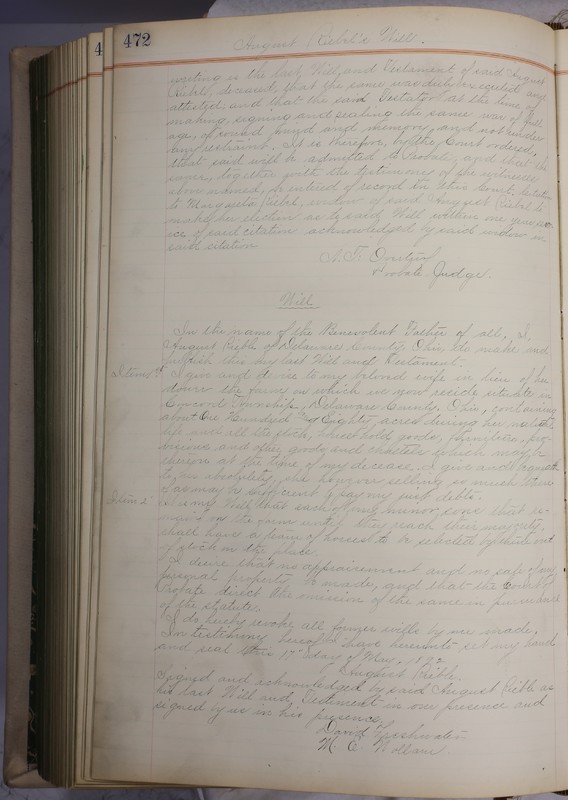 4
472
August Riebl's Will.
writing is the last Will and Testament of said August
Riebl, deceased, that the same was duly executed and
attested, and that the said Testator at the time of
making, signing and sealing the same was of full
age, of sound mind and memory, and not under
any restraint. It is therefore, by the Court ordered,
that said will be admitted to Probate, and that the
same, together with the testimony of the witnesses
above named, be entered of record in this Court. Citation
to Margareta Riebl, widow of said August Riebl to
make her election as to said Will within one year,
ice of said citation acknowledged by said widow in
said citation
Probate Judge.
Will
In the name of the Benevolent Father of all, I,
August Riebl of Delaware County, Ohio, do make and
publish this my last Will and Testament.
Item 1st I give and devise to my beloved wife in lieu of her
dower the farm on which we now reside situate in
Concord Township, Delaware County, Ohio, containing
about One Hundred and Eighty acres during her natural
life and all the stock, household goods, furniture, pro-
visions and other goods and chattels which may be
thereon at the time of my decease. I give and bequeath
to her absolutely, she however selling so much there
of as may be sufficient to pay my just debts.
Item 2d It is my Will that each of my minor sons that re-
mains on the farm until they reach their majority,
shall have a team of horses to be selected by them out
of stock on the place.
I desire that no appraisement and no sale of my
personal property be made, and that the Court of
Probate direct the omission of the same in pursuance
of the statute.
I do hereby revoke all former wills by me made,
In testimony hereof I have hereunto set my hand
and seal this 17th day of May, 1892
August Riebl.
Signed and acknowledged by said August Riebl as
his last Will and Testament in our presence and
signed by us in his presence,
David Freshwater